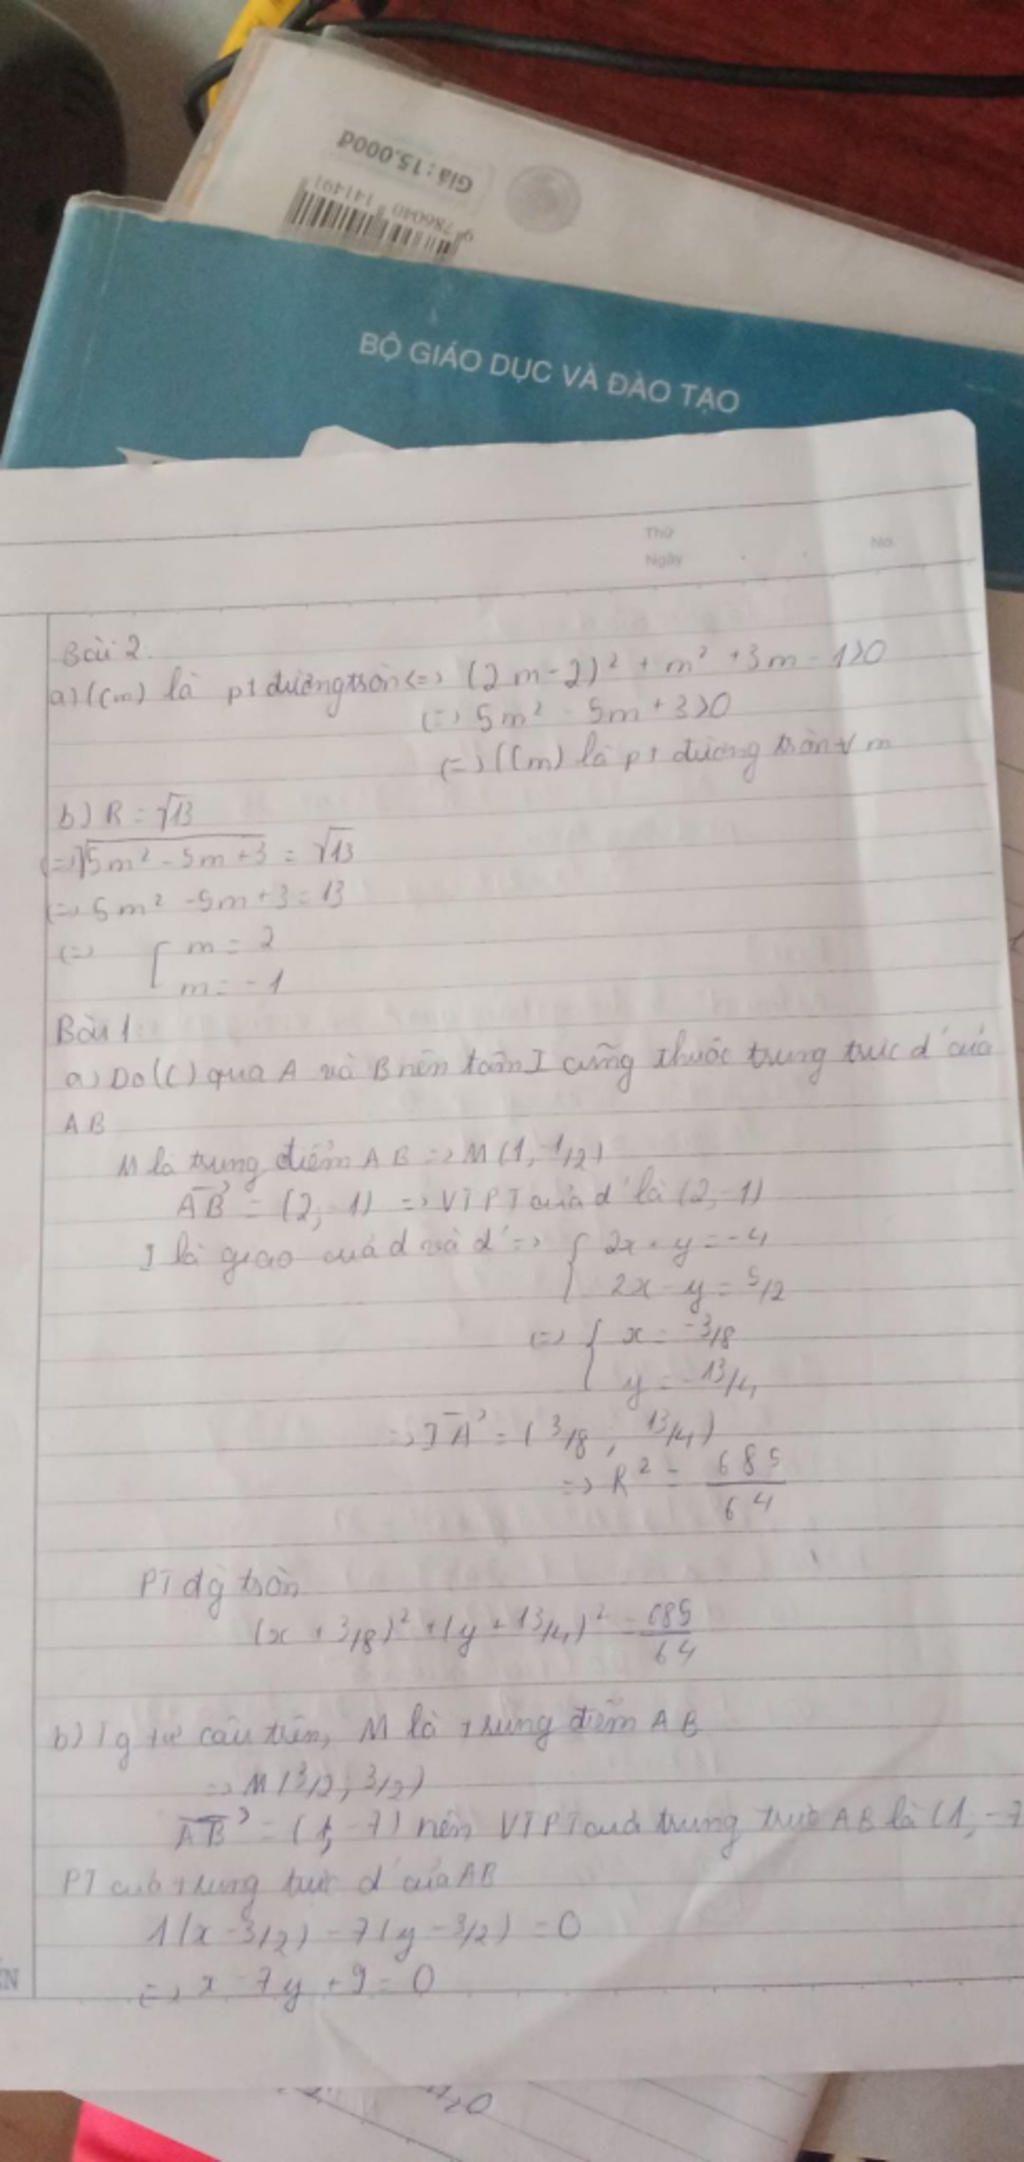 Giá: 15.000đ
9 786040 141491
BỘ GIÁO DỤC VÀ ĐÀO TẠO
Thứ
Ngày
No.
Bài 2.
a) (Cm) là pt đường tròn <=> (2m-2)² + m² + 3m - 1 > 0
<=> 5m² - 5m + 3 > 0
<=> (Cm) là pt đường tròn ∀ m
b) R = √13
<=> √5m² - 5m + 3 = √13
<=> 5m² - 5m + 3 = 13
<=> [ m = 2
m = -1
Bài 1:
a) Do (C) qua A và B nên tâm I cũng thuộc trung trực d' của
AB
M là trung điểm AB => M(1, -1/2)
AB = (2, -1) => VTPT của d' là (2, -1)
I là giao của d và d' => { 2x + y = -4
2x - y = 5/2
<=> { x = -3/8
y = -13/4
=> IA = (3/8; 13/4)
=> R² = 685/64
PT đg tròn
(x + 3/8)² + (y + 13/4)² = 685/64
b) Tg tự câu trên, M là trung điểm AB
=> M(3/2; 3/2)
AB = (1, -7) nên VTPT của trung trực AB là (1, -7
PT của trung trực d' của AB
1(x - 3/2) - 7(y - 3/2) = 0
<=> x - 7y + 9 = 0